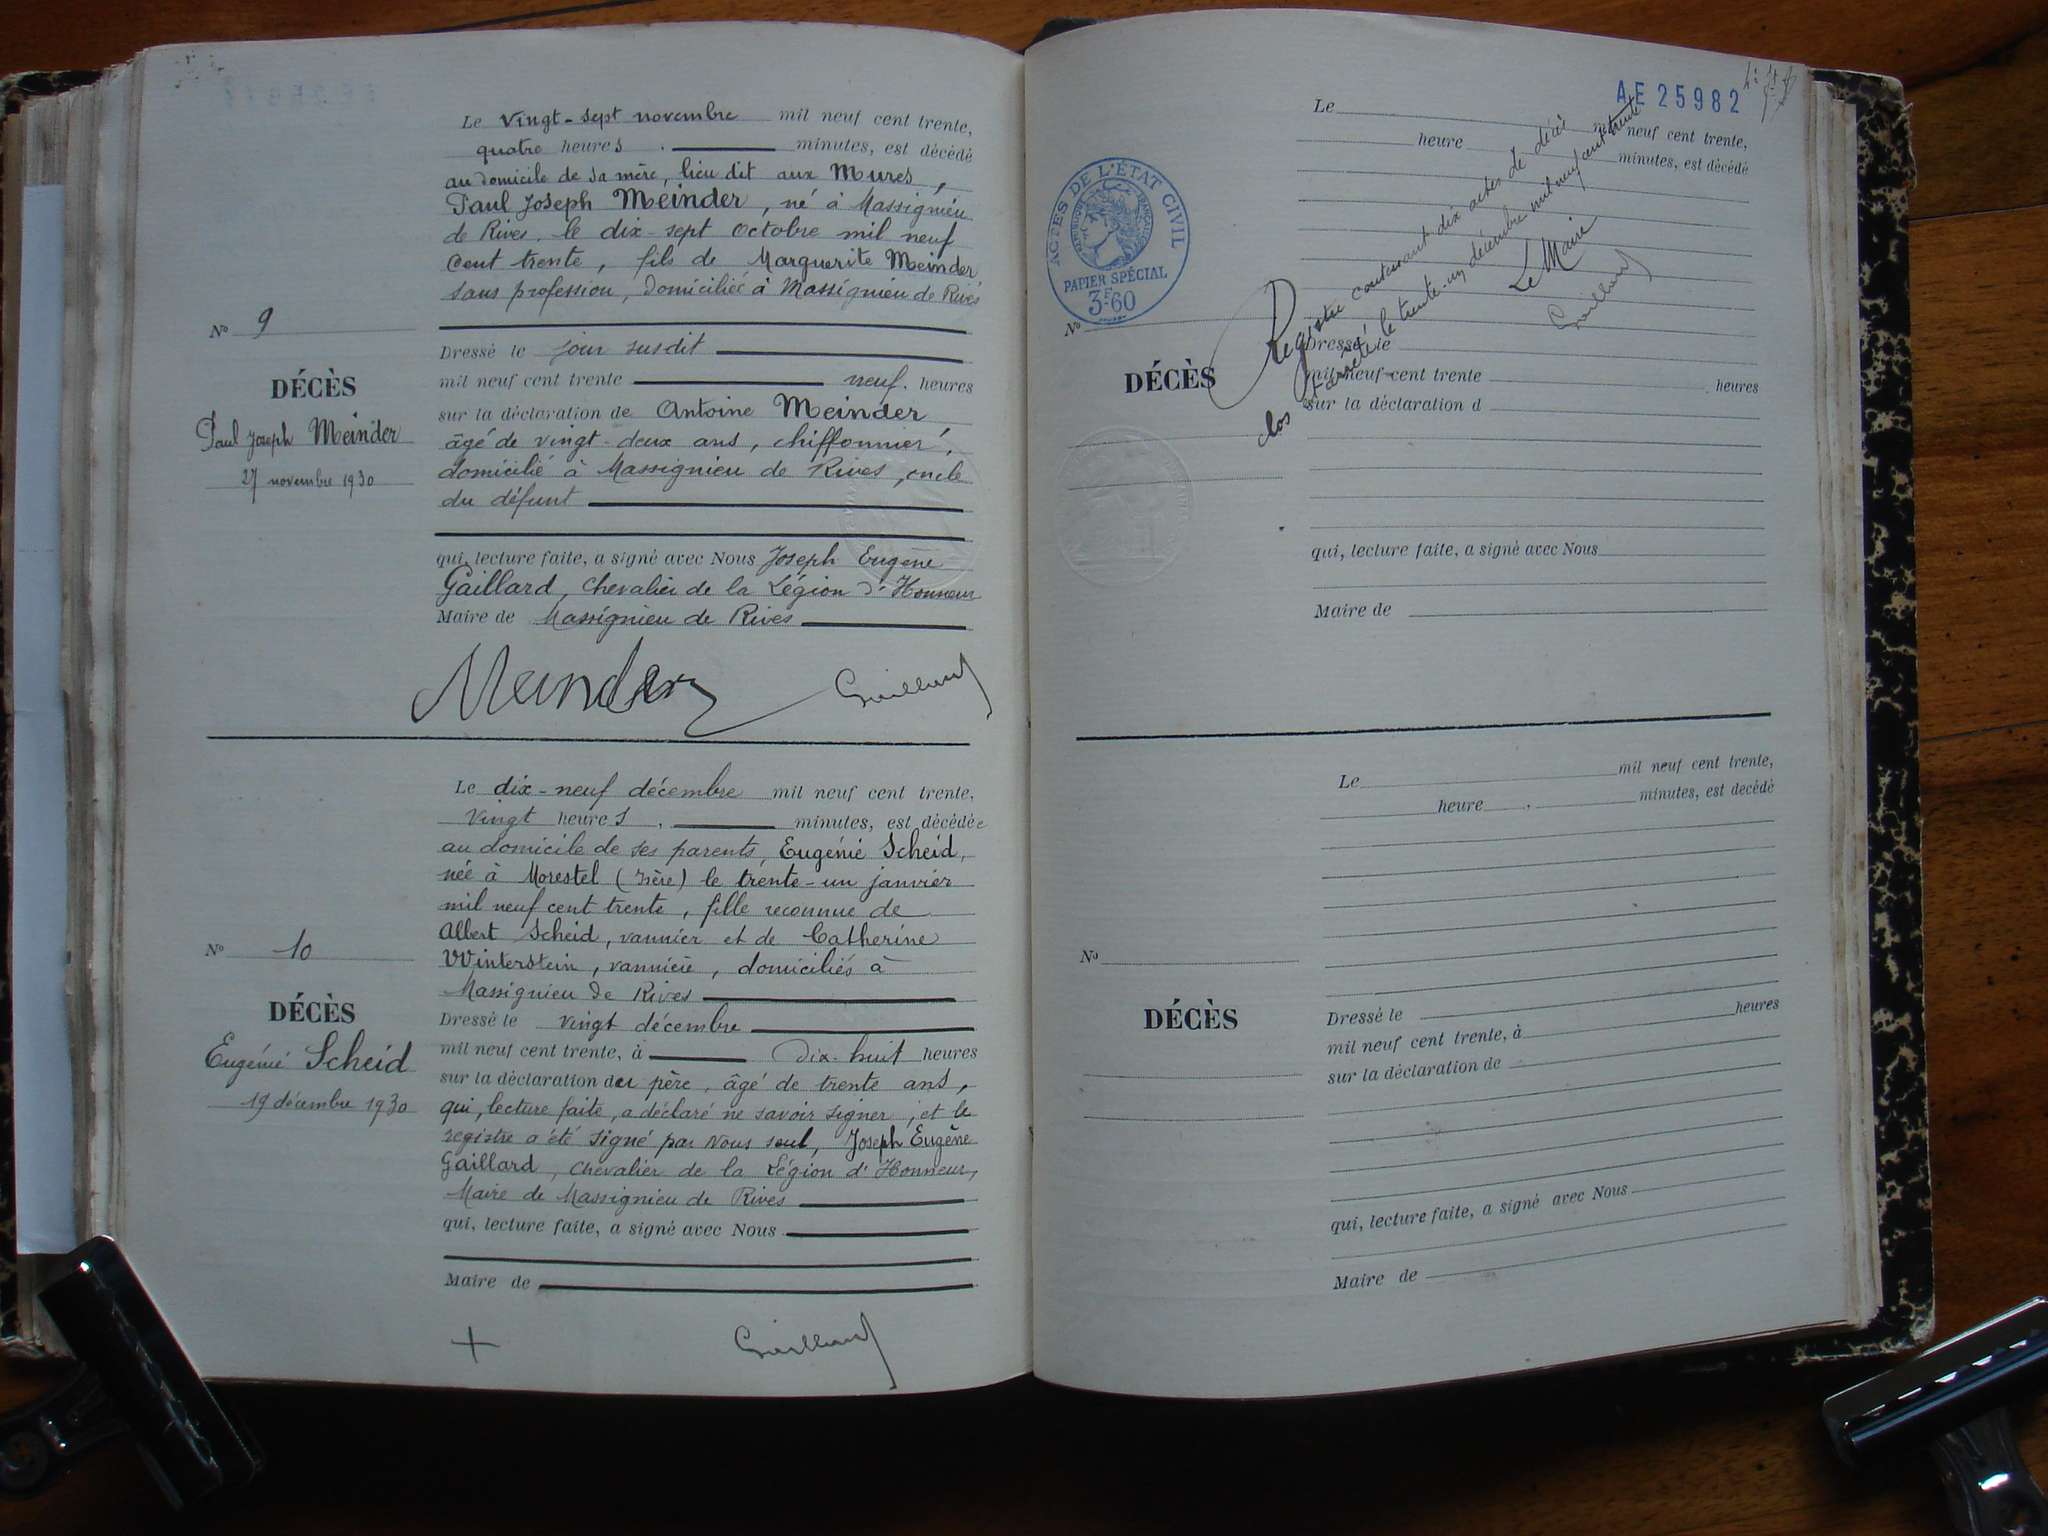 Le vingt-sept novembre mil neuf cent trente,
quatre heures . minutes, est décédé
au domicile de sa mère, lieu dit aux Mures,
Paul Joseph Meinder, né à Massignieu
de Rives. le dix-sept octobre mil neuf
cent trente, fils de Marguerite Meinder
sans profession, domiciliée à Massignieu de Rives
No 9
Dressé le jour susdit
DÉCÈS
mil neuf cent trente neuf. heures
Paul Joseph Meinder
sur la déclaration de Antoine Meinder
27 novembre 1930
âgé de vingt-deux ans, chiffonnier,
domicilié à Massignieu de Rives, oncle
du défunt
qui, lecture faite, a signé avec Nous Joseph Eugène
Gaillard, Chevalier de la Légion d'Honneur
Maire de Massignieu de Rives
Meinder Gaillard
Le dix-neuf décembre mil neuf cent trente,
vingt heures , minutes, est décédée
au domicile de ses parents, Eugénie Scheid,
née à Morestel (Isère) le trente-un janvier
mil neuf cent trente, fille reconnue de
Albert Scheid, vannier et de Catherine
Winterstein, vannière, domiciliés à
No 10
Massignieu de Rives
DÉCÈS
Dressé le vingt décembre
Eugénie Scheid
mil neuf cent trente, à dix-huit heures
19 décembre 1930
sur la déclaration du père, âgé de trente ans,
qui, lecture faite, a déclaré ne savoir signer, et le
registre a été signé par Nous seul, Joseph Eugène
Gaillard, Chevalier de la Légion d'Honneur,
Maire de Massignieu de Rives
qui, lecture faite, a signé avec Nous
Maire de
+ Gaillard
AE 25982
Le mil neuf cent trente,
heure minutes, est décédé
ACTES DE L'ÉTAT CIVIL
RÉPUBLIQUE FRANÇAISE
PAPIER SPÉCIAL
3F.60
Registre contenant dix actes de décès
clos et arrêté le trente-un décembre mil neuf cent trente
Le Maire
Gaillard
No
DÉCÈS
Dressé le
mil neuf cent trente heures
sur la déclaration d
qui, lecture faite, a signé avec Nous
Maire de
Le mil neuf cent trente,
heure , minutes, est decédé
No
DÉCÈS
Dressé le
mil neuf cent trente, à heures
sur la déclaration de
qui, lecture faite, a signé avec Nous
Maire de